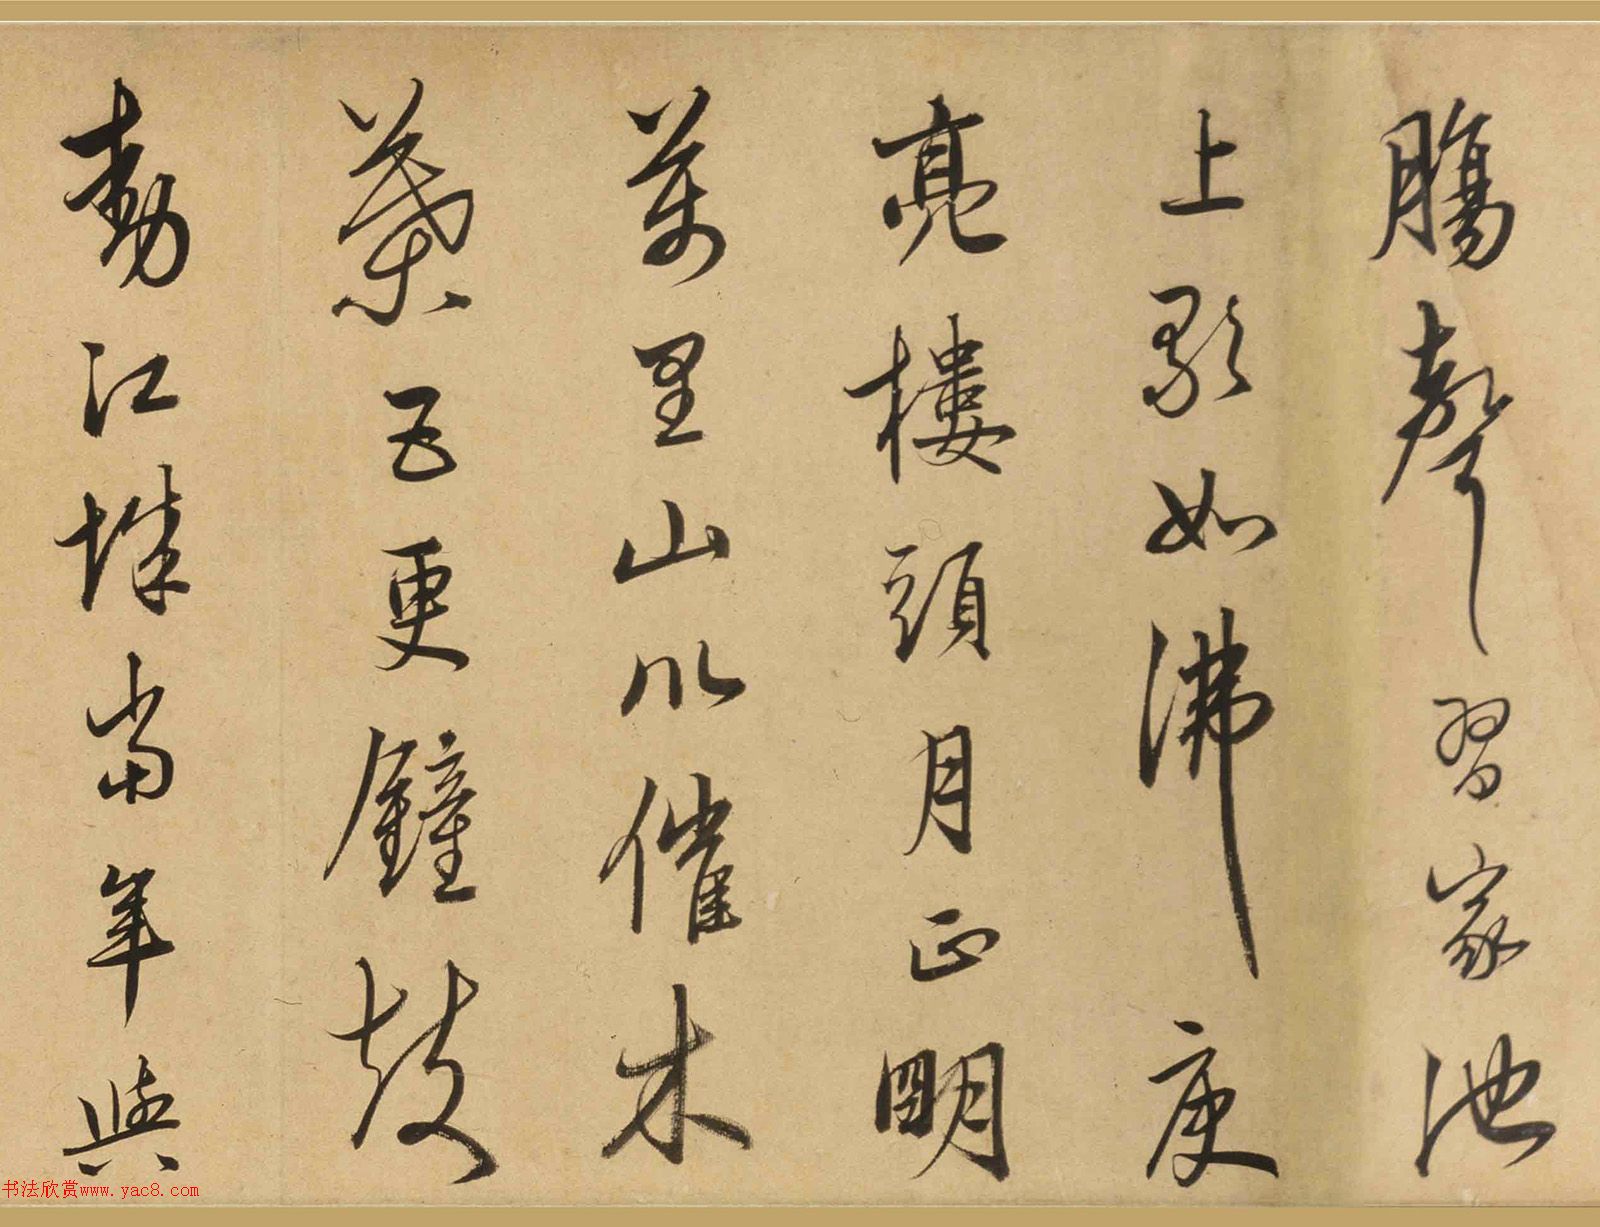 腸聲習家池
上歌如沸庾
亮樓頭月正明
萬里山川催木
葉五更鐘鼓
動江城當年與
书法欣赏www.yac8.com